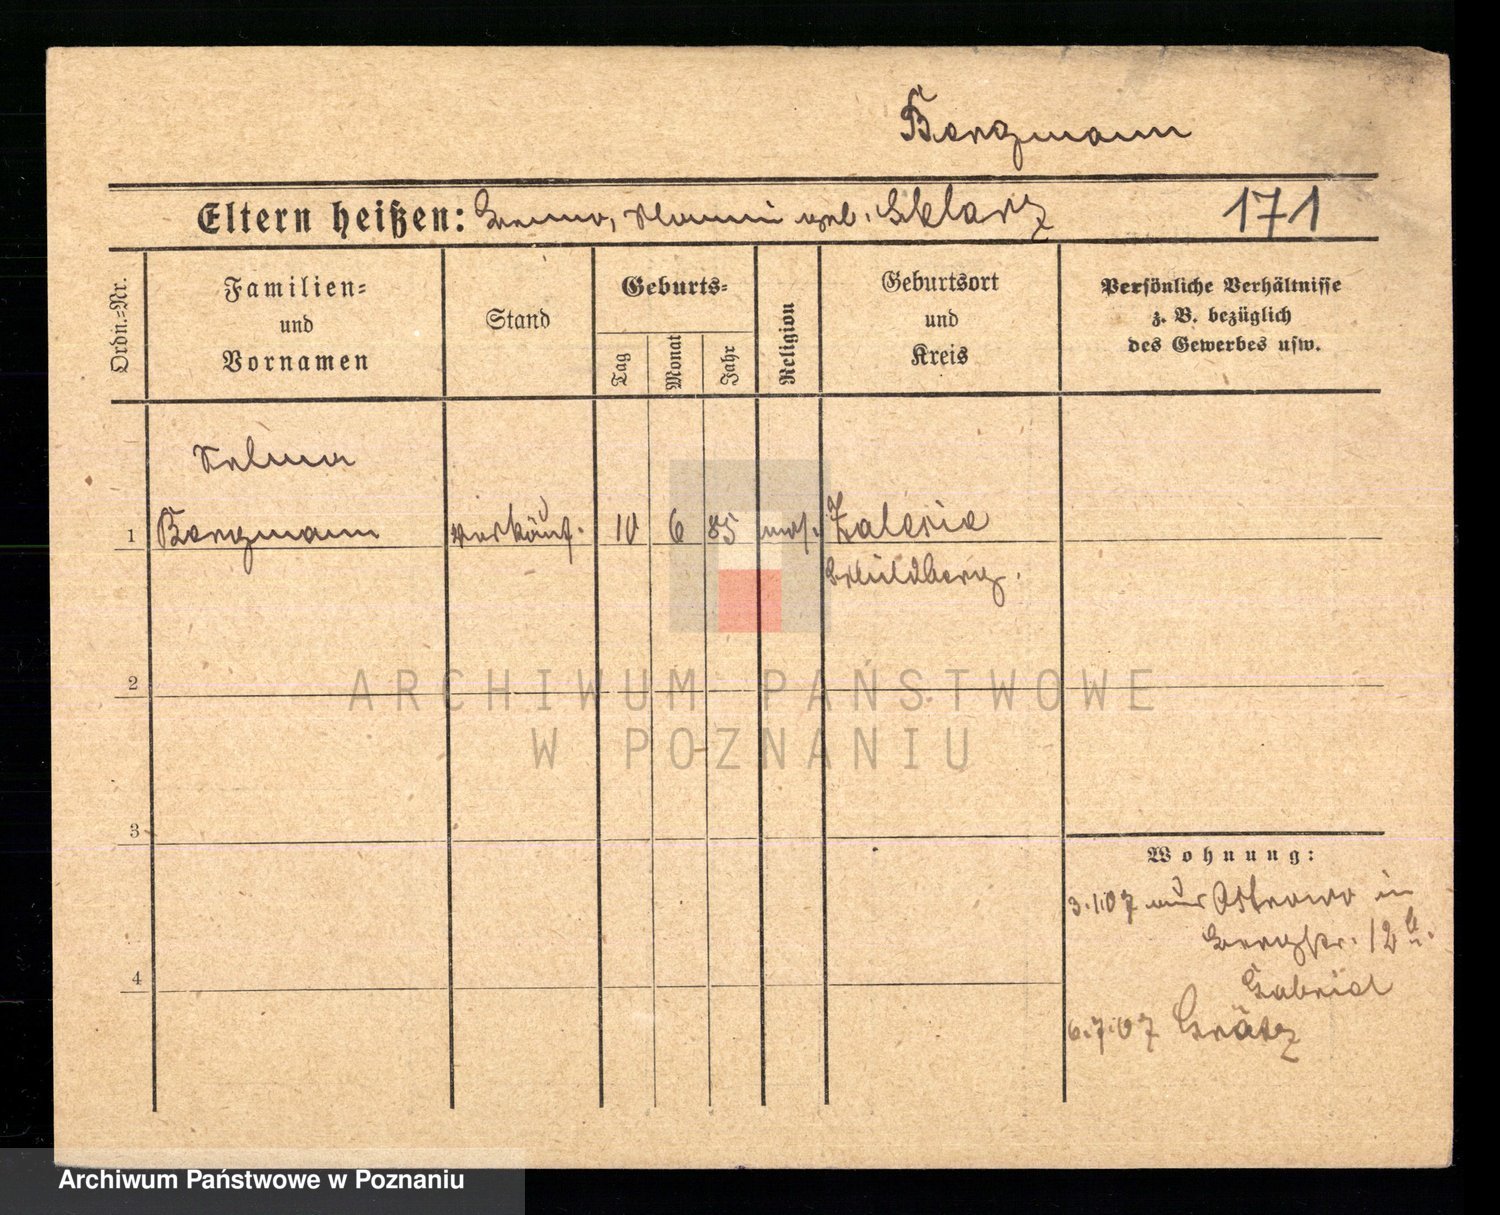 Bergmann
Eltern heißen: Benno, Nanni geb. Sklarz 171
Ordn.=Nr.
Familien=
und
Vornamen
Stand
Geburts=
Tag
Monat
Jahr
Religion
Geburtsort
und
Kreis
Persönliche Verhältnisse
z. B. bezüglich
des Gewerbes usw.
Selma
1 Bergmann Verkäuf. 10 6 85 mos. Zalesie
Schildberg.
ARCHIWUM PAŃSTWOWE
W POZNANIU
2
3
4
Wohnung:
3.1.07 aus Ostrowo in
Bergstr. 12
Gabriel
6.7.07 Grätz
Archiwum Państwowe w Poznaniu